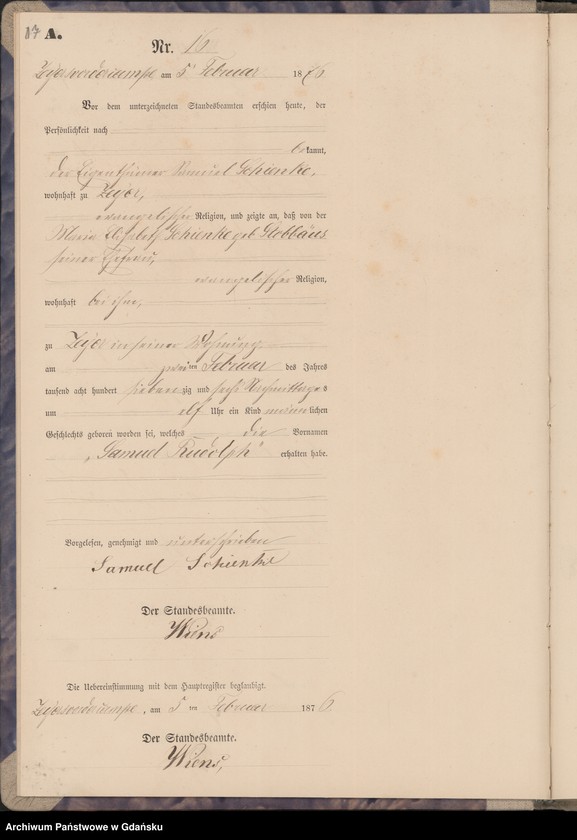 17 A.
Nr. 16
Zeyersvorderkampe am 5ᵗ Februar 1876
Vor dem unterzeichneten Standesbeamten erschien heute, der
Persönlichkeit nach
bekannt,
der Eigenthümer Samuel Schienke,
wohnhaft zu Zeyer,
evangelischer Religion, und zeigte an, daß von der
Maria Elisabeth Schienke geb.
seiner Ehefrau,
evangelischer Religion,
wohnhaft bei ihm,
zu Zeyer in seiner Wohnung
am zweiten Februar des Jahres
tausend acht hundert siebenzig und sechs Nachmittags
um elf Uhr ein Kind männlichen
Geschlechts geboren worden sei, welches die Vornamen
„Samuel Rudolph“ erhalten habe.
Vorgelesen, genehmigt und unterschrieben
Samuel Schienke
Der Standesbeamte.
Wiens
Die Uebereinstimmung mit dem Hauptregister beglaubigt.
Zeyersvorderkampe, am 5 ten Februar 1876
Der Standesbeamte.
Wiens,
Archiwum Państwowe w Gdańsku